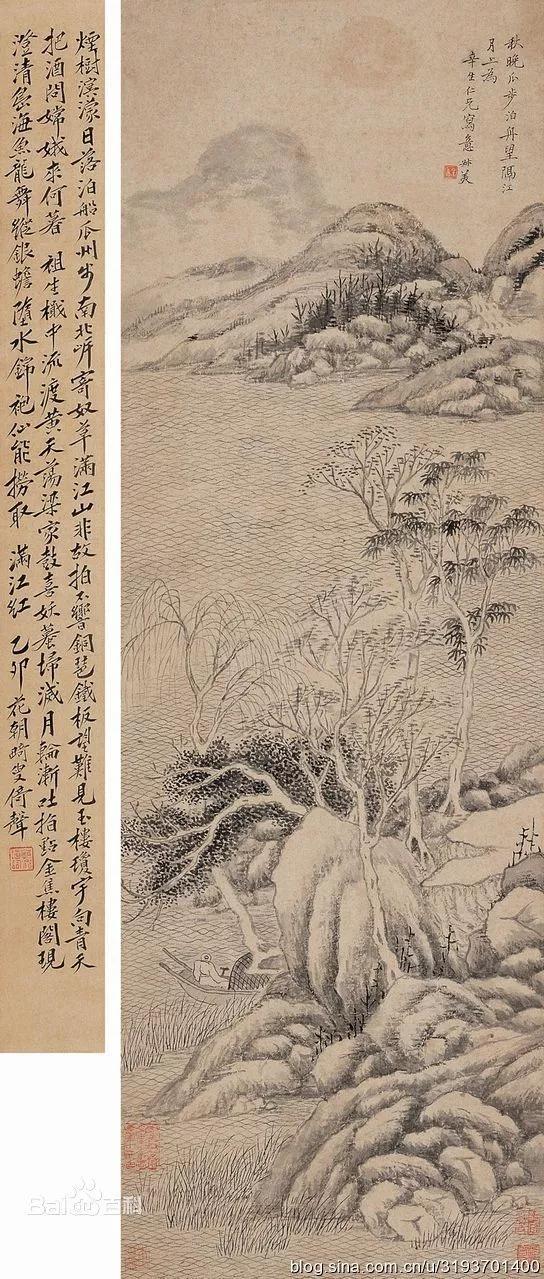 秋晚瓜步泊舟望隔江
月上为
辛生仁兄寫意
煙樹溟濛日落泊船瓜州步南北岸寄奴草滿江山非故拍不響銅琶鐵板望難見玉樓瓊宇向青天
把酒問嫦娥來何暮 祖生楫中流渡黃天蕩梁家鼓喜妖蟇掃滅月輪漸吐指點金焦樓閣現
澄清雲海魚龍舞縱銀蟾墮水錦袍仙能撈取 滿江紅 乙卯花朝 倚聲
Bai 百科
blog.sina.com.cn/u/3193701400